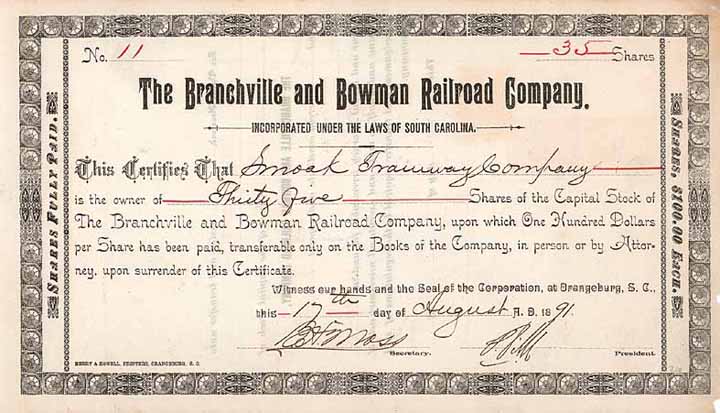 No. 11
35 Shares
The Branchville and Bowman Railroad Company.
INCORPORATED UNDER THE LAWS OF SOUTH CAROLINA.
This Certifies That Smoak Tramway Company
is the owner of Thirty Five Shares of the Capital Stock of
The Branchville and Bowman Railroad Company, upon which One Hundred Dollars
per Share has been paid, transferable only on the Books of the Company, in person or by Attor-
ney, upon surrender of this Certificate.
Witness our hands and the Seal of the Corporation, at Orangeburg, S. C.,
this 17th day of August A. D. 1891.
B H Moss
Secretary.
President.
BERRY & HOWELL, PRINTERS, ORANGEBURG, S. C.
SHARES FULLY PAID.
SHARES, $100.00 EACH.